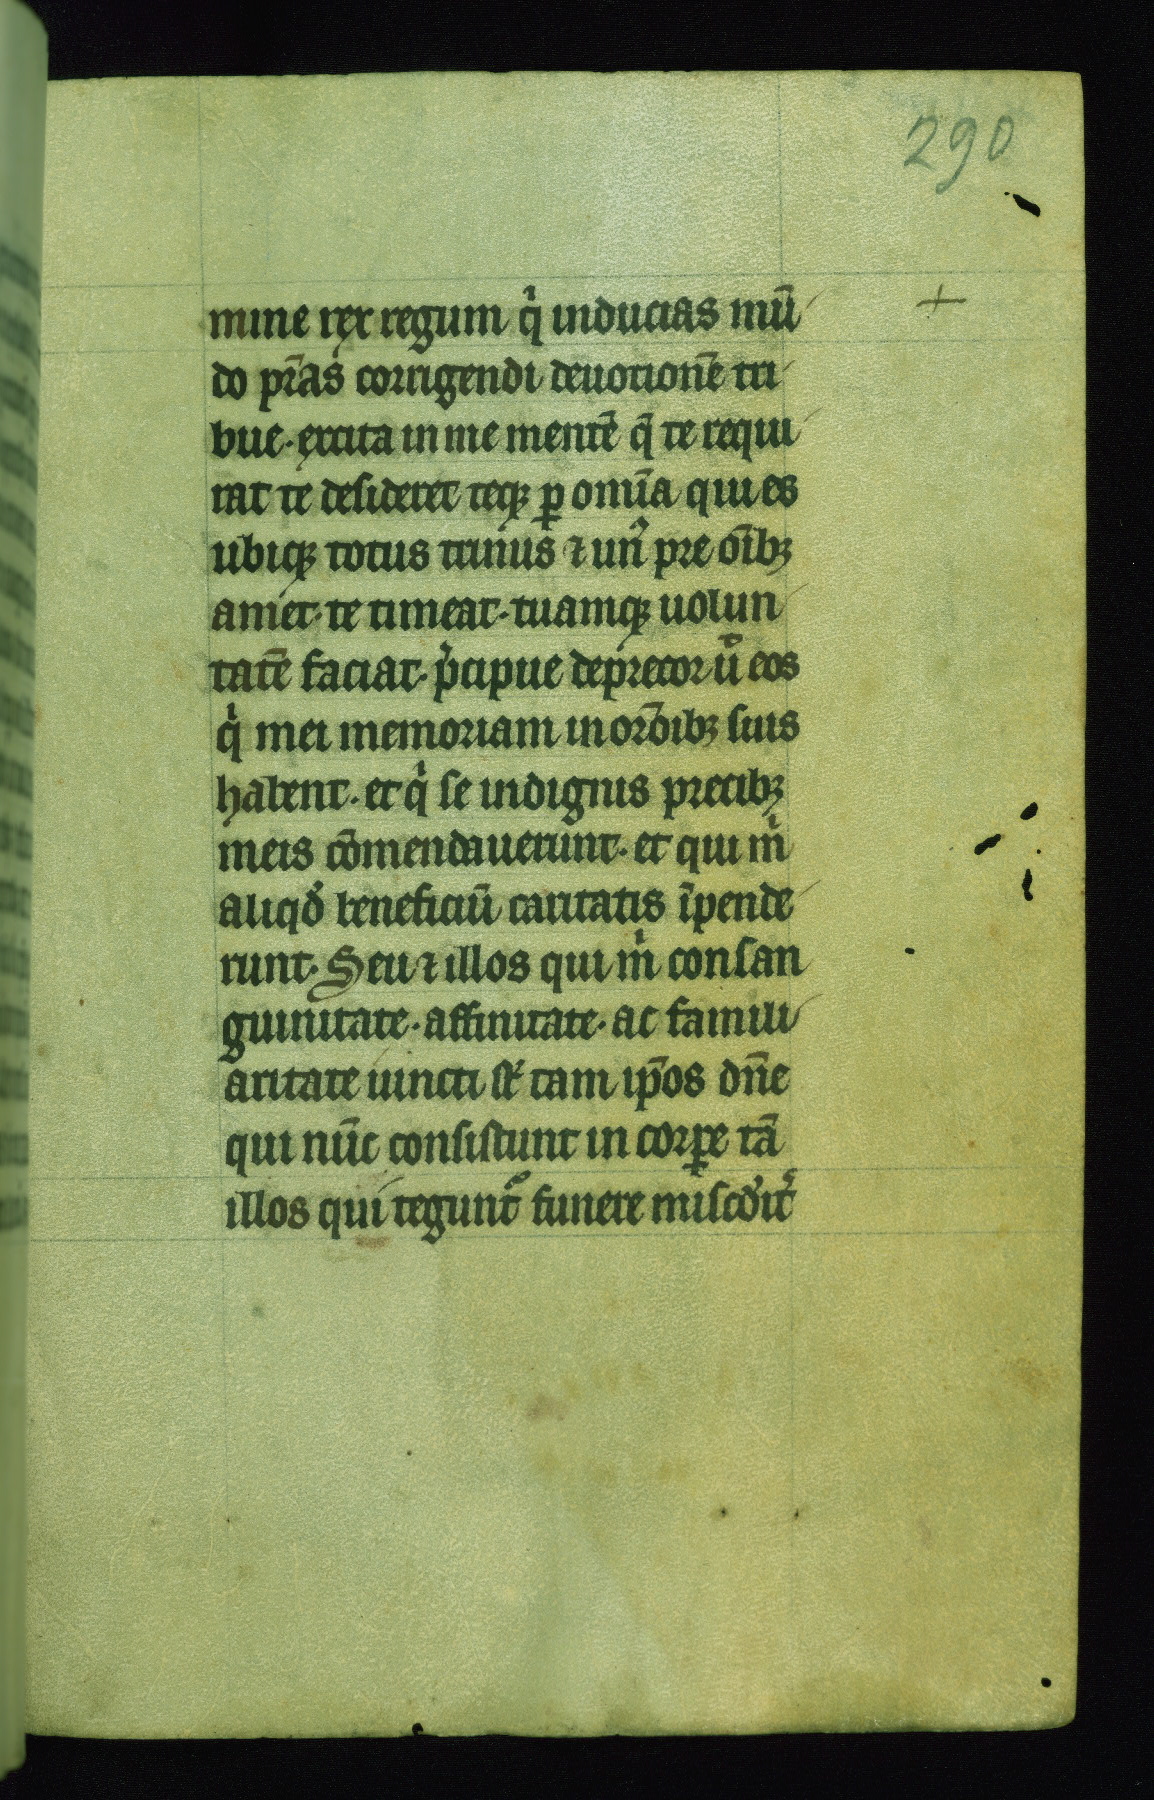 290
+
mine rex regum qͥ inducias mū
do pr̄as corrigendi deuotionē tri
bue. excita in me mentē q̄ te requi
rat te desideret teqꝫ ꝑ omīa qui es
ubiqꝫ totus trinus ⁊ un᷒ pre oībꝫ
amet. te timeat. tuamqꝫ uolun
tatē faciat. p̍cipue deprecor uͦ eos
qͥ mei memoriam in orōibꝫ suis
habent. et qͥ se indignis precibꝫ
meis cōmendauerunt. et qui mͥ
aliqd̛ beneficiū caritatis īpende
runt. Seu ⁊ illos qui mͥ consan
guinitate. affinitate. ac famili
aritate uincti st̛ tam ip̄os dn̄e
qui nūc consistunt in corꝑe tā
illos qui tegunt᷑ funere miscd̛it᷑